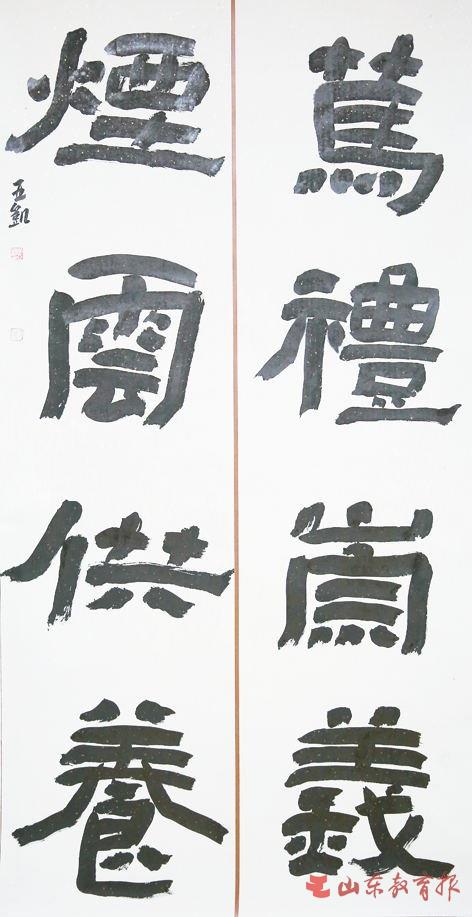 篤禮崇義
煙雲供養
山东教育报